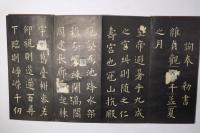 奉 勅書
維貞觀六年孟夏
之月
皇帝避暑乎九成
之宮此則隨之仁
壽宮也冠山抗殿
絕壑為池跨水架
楹分巖竦闕高閣
周建長廊四起棟
宇膠葛臺榭參差
仰視則迢遰百尋
下臨則崢嶸千仞